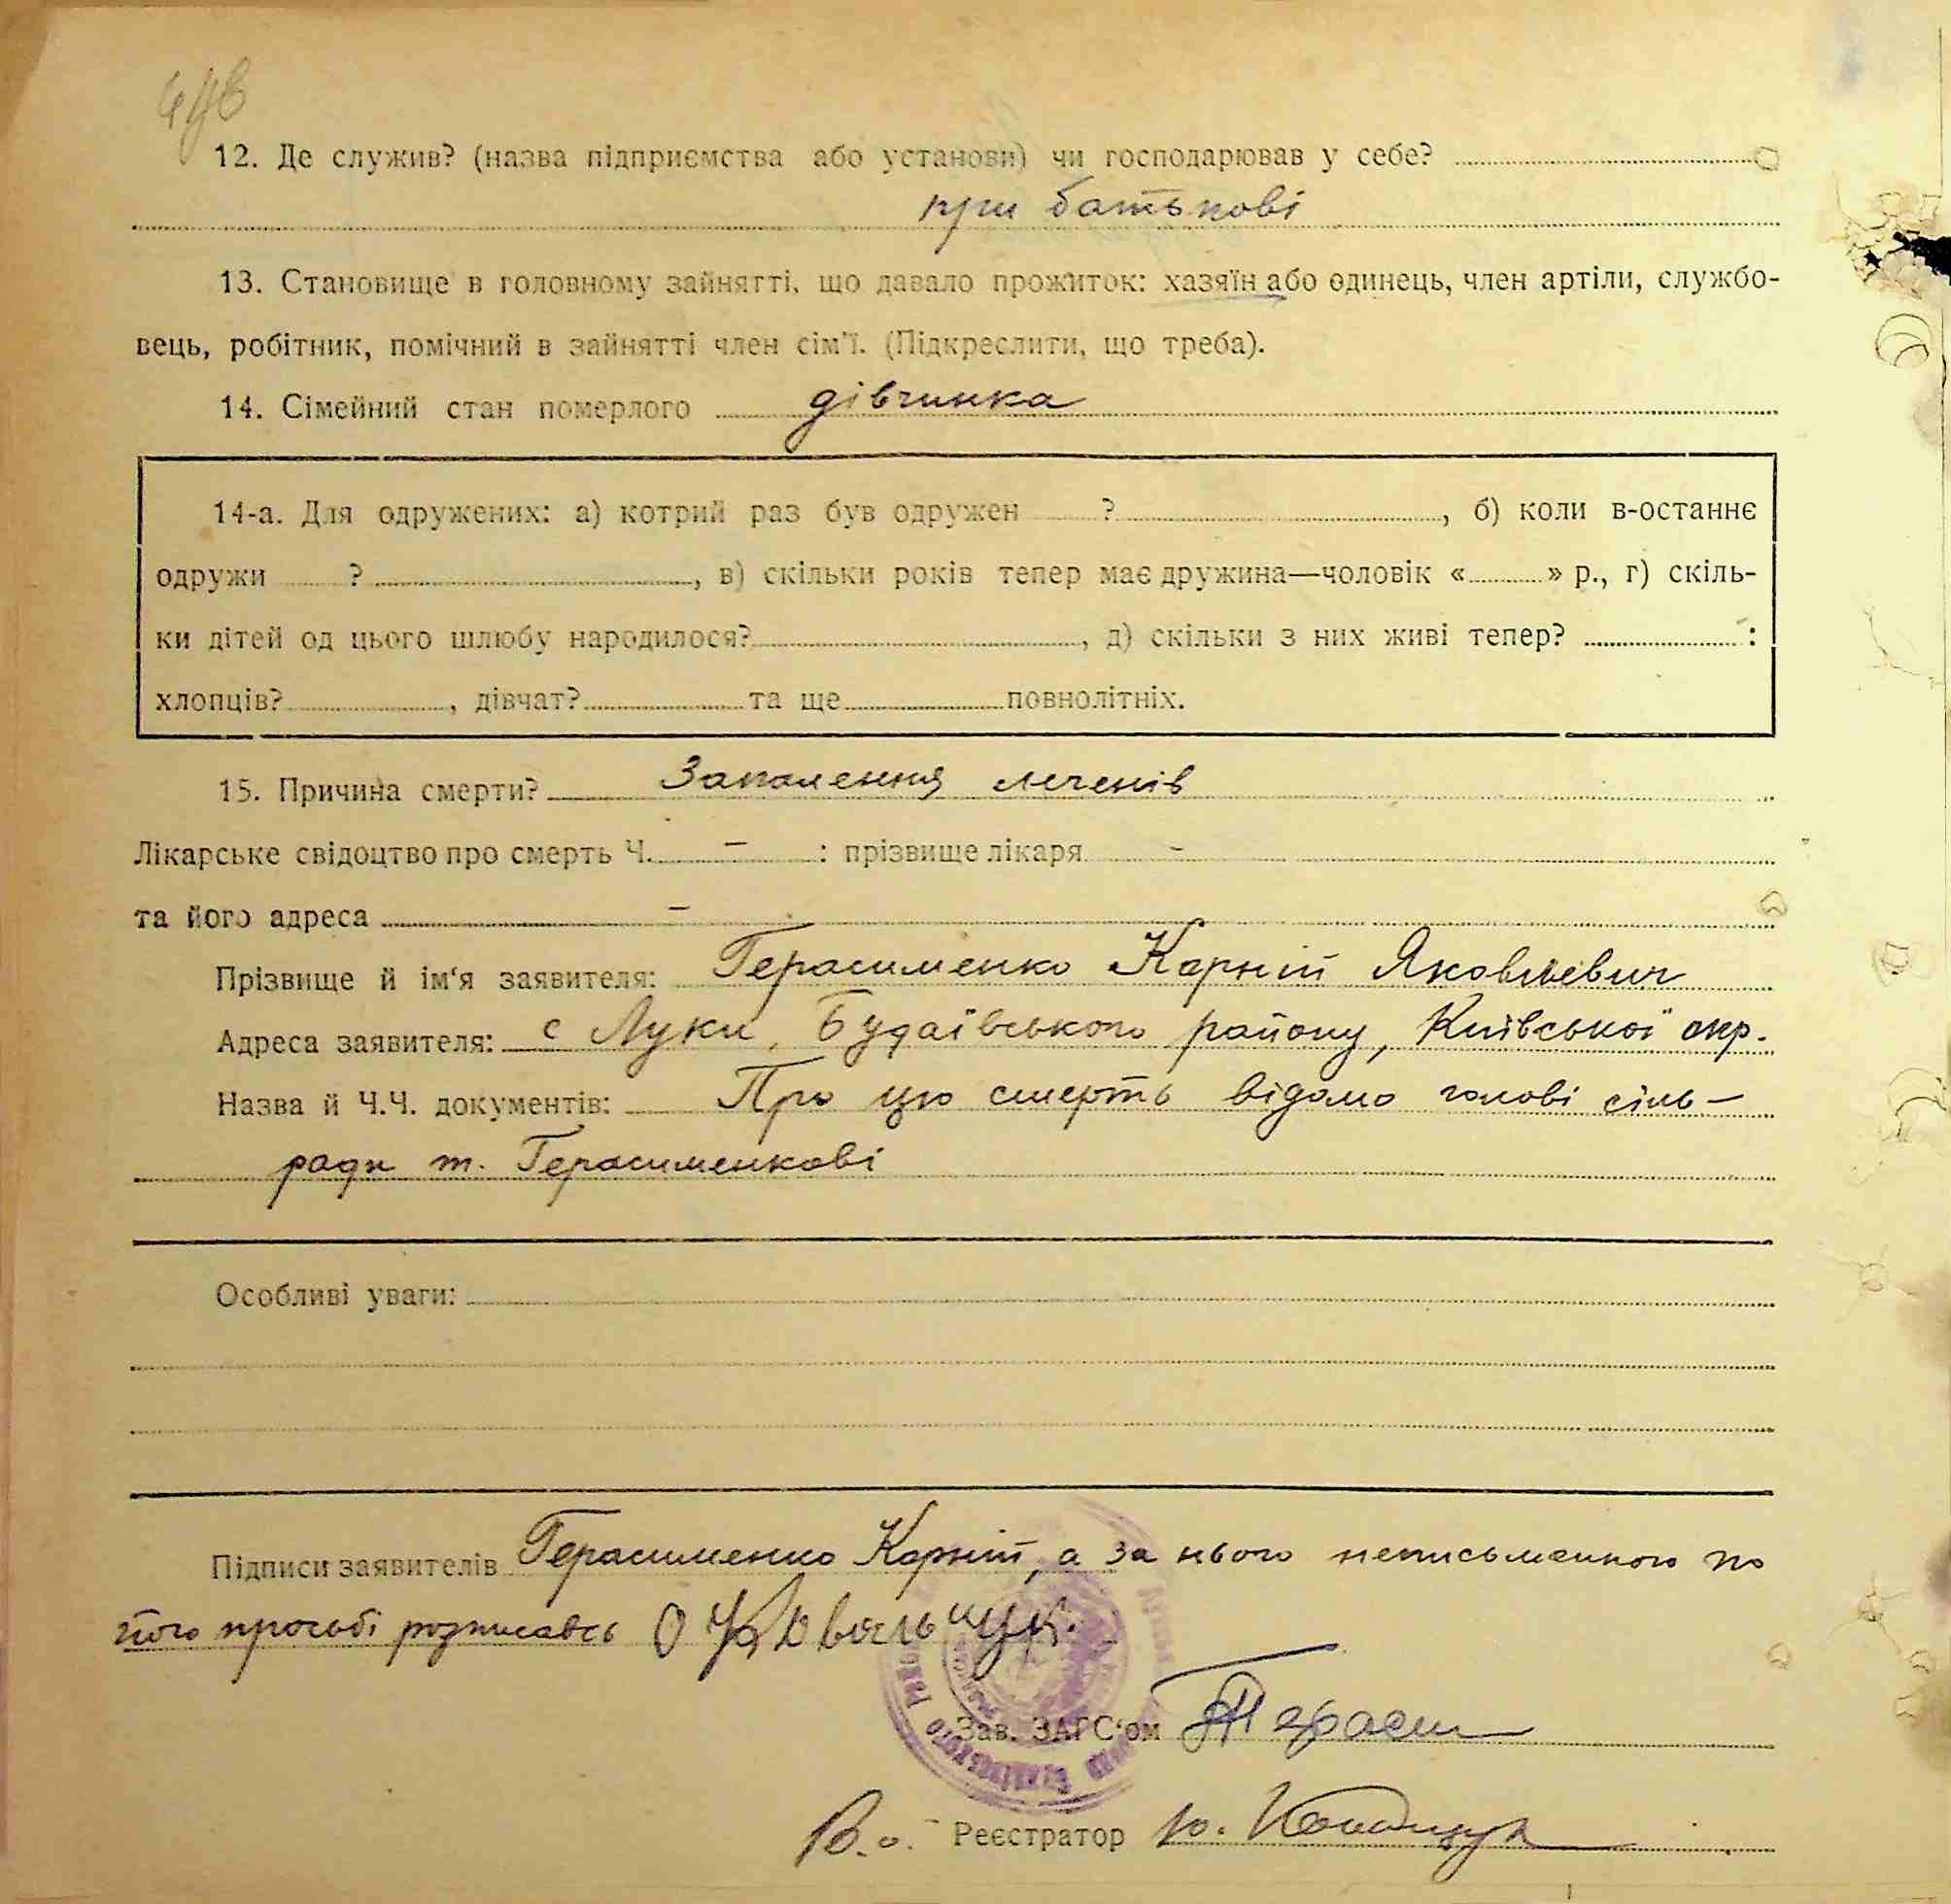 12. Де служив? (назва підприємства або установи) чи господарював у себе?
при батькові
13. Становище в головному зайнятті, що давало прожиток: хазяїн або одинець, член артіли, службо-
вець, робітник, помічний в зайнятті член сім'ї. (Підкреслити, що треба).
14. Сімейний стан померлого дівчинка
14-а. Для одружених: а) котрий раз був одружен ?, б) коли в-останнє
одружи ?, в) скільки років тепер має дружина—чоловік « » р., г) скіль-
ки дітей од цього шлюбу народилося?, д) скільки з них живі тепер? :
хлопців?, дівчат? та ще повнолітніх.
15. Причина смерти? Запалення легенів
Лікарське свідоцтво про смерть Ч. – : прізвище лікаря -
та його адреса –
Прізвище й ім'я заявителя: Герасименко Карній Яковлевич
Адреса заявителя: с Луки, Будаївського району, Київської окр.
Назва й Ч.Ч. документів: Про цю смерть відомо голові сіль-
ради т. Герасименкові
Особливі уваги:
Підписи заявителів Герасименко Карній, а за нього неписьменного по
його прозьбі розписавсь О Ковальчук.
Зав. ЗАГС'ом
В.о. Реєстратор